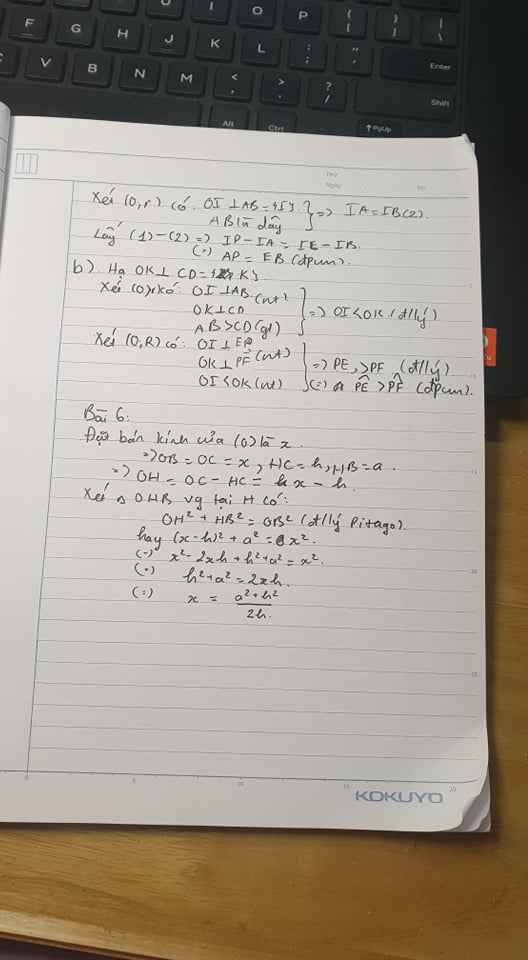 F G H J K L : ; " ' Enter
I O P { [ } ] | \
C V B N M < , > . ? / Shift
Alt Ctrl PgUp
Xét (O,r) có OI ⊥ AB = {I}
AB là dây } => IA = IB (2).
Lấy (1) - (2) => IP - IA = IE - IB
(=) AP = EB (đpcm).
b). Hạ OK ⊥ CD = { K}
Xét (O,r) có: OI ⊥ AB (nt)
OK ⊥ CD
AB > CD (gt) } => OI < OK (đ/lý)
Xét (O,R) có: OI ⊥ EP
OK ⊥ PF (nt)
OI < OK (nt) } => PE > PF (đ/lý)
(=) PE > PF (đpcm).
Bài 6:
Đặt bán kính của (O) là x.
=> OB = OC = x, HC = h, HB = a.
=> OH = OC - HC = x - h.
Xét △ OHB vg tại H có:
OH² + HB² = OB² (đ/lý Pitago).
hay (x-h)² + a² = x².
(=) x² - 2xh + h² + a² = x².
(=) h² + a² = 2xh.
(=) x = a² + h² / 2h.
KOKUYO